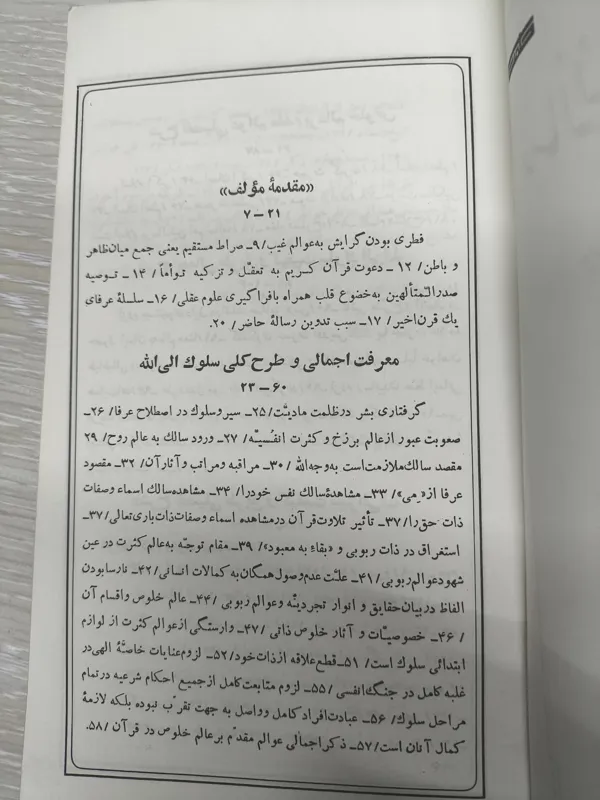 «مقدمهٔ مؤلف»
۲۱ – ۷
فطری بودن گرایش به عوالم غیب/ ۹ـ صراط مستقیم یعنی جمع میان ظاهر
و باطن/ ۱۲ ـ دعوت قرآن کریم به تعقّل و تزکیه توأماً/ ۱۴ ـ توصیه
صدرالمتألهین به خضوع قلب همراه بافراگیری علوم عقلی/ ۱۶ـ سلسلهٔ عرفای
یك قرن اخیر/ ۱۷ـ سبب تدوین رسالهٔ حاضر/ ۲۰.
معرفت اجمالی و طرح کلی سلوك الی الله
۶۰ – ۲۳
گرفتاری بشر در ظلمت مادیّت/ ۲۵ـ سیر و سلوك در اصطلاح عرفا/ ۲۶ـ
صعوبت عبور از عالم برزخ و کثرت انفُسیّه/ ۲۷ـ ورود سالك به عالم روح/ ۲۹
مقصد سالك ملازمت است به وجه الله/ ۳۰ـ مراقبه و مراتب و آثار آن/ ۳۲ـ مقصود
عرفا از «می»/ ۳۳ـ مشاهدهٔ سالك نفس خود را/ ۳۴ـ مشاهده سالك اسماء وصفات
ذات حق را/ ۳۷ـ تأثیر تلاوت قرآن در مشاهده اسماء وصفات ذات باری تعالی/ ۳۷ـ
استغراق در ذات ربوبی و «بقاءِ به معبود»/ ۳۹ـ مقام توجّه به عالم کثرت در عین
شهود عوالم ربوبی/ ۴۱ـ علّت عدم وصول همگان به کمالات انسانی/ ۴۲ـ نارسا بودن
الفاظ در بیان حقایق و انوار تجردیّه و عوالم ربوبی/ ۴۴ـ عالم خلوص و اقسام آن
/ ۴۶ـ خصوصیّات و آثار خلوص ذاتی/ ۴۷ـ وارستگی از عوالم کثرت از لوازم
ابتدائی سلوك است/ ۵۱ـ قطع علاقه از ذات خود/ ۵۲ـ لزوم عنایات خاصّهٔ الهی در
غلبه کامل در جنگ انفسی/ ۵۵ـ لزوم متابعت کامل از جمیع احکام شرعیه در تمام
مراحل سلوك/ ۵۶ـ عبادت افراد کامل و واصل به جهت تقرّب نبوده بلکه لازمهٔ
کمال آنان است/ ۵۷ـ ذکر اجمالی عوالم مقدّم بر عالم خلوص در قرآن/ ۵۸.